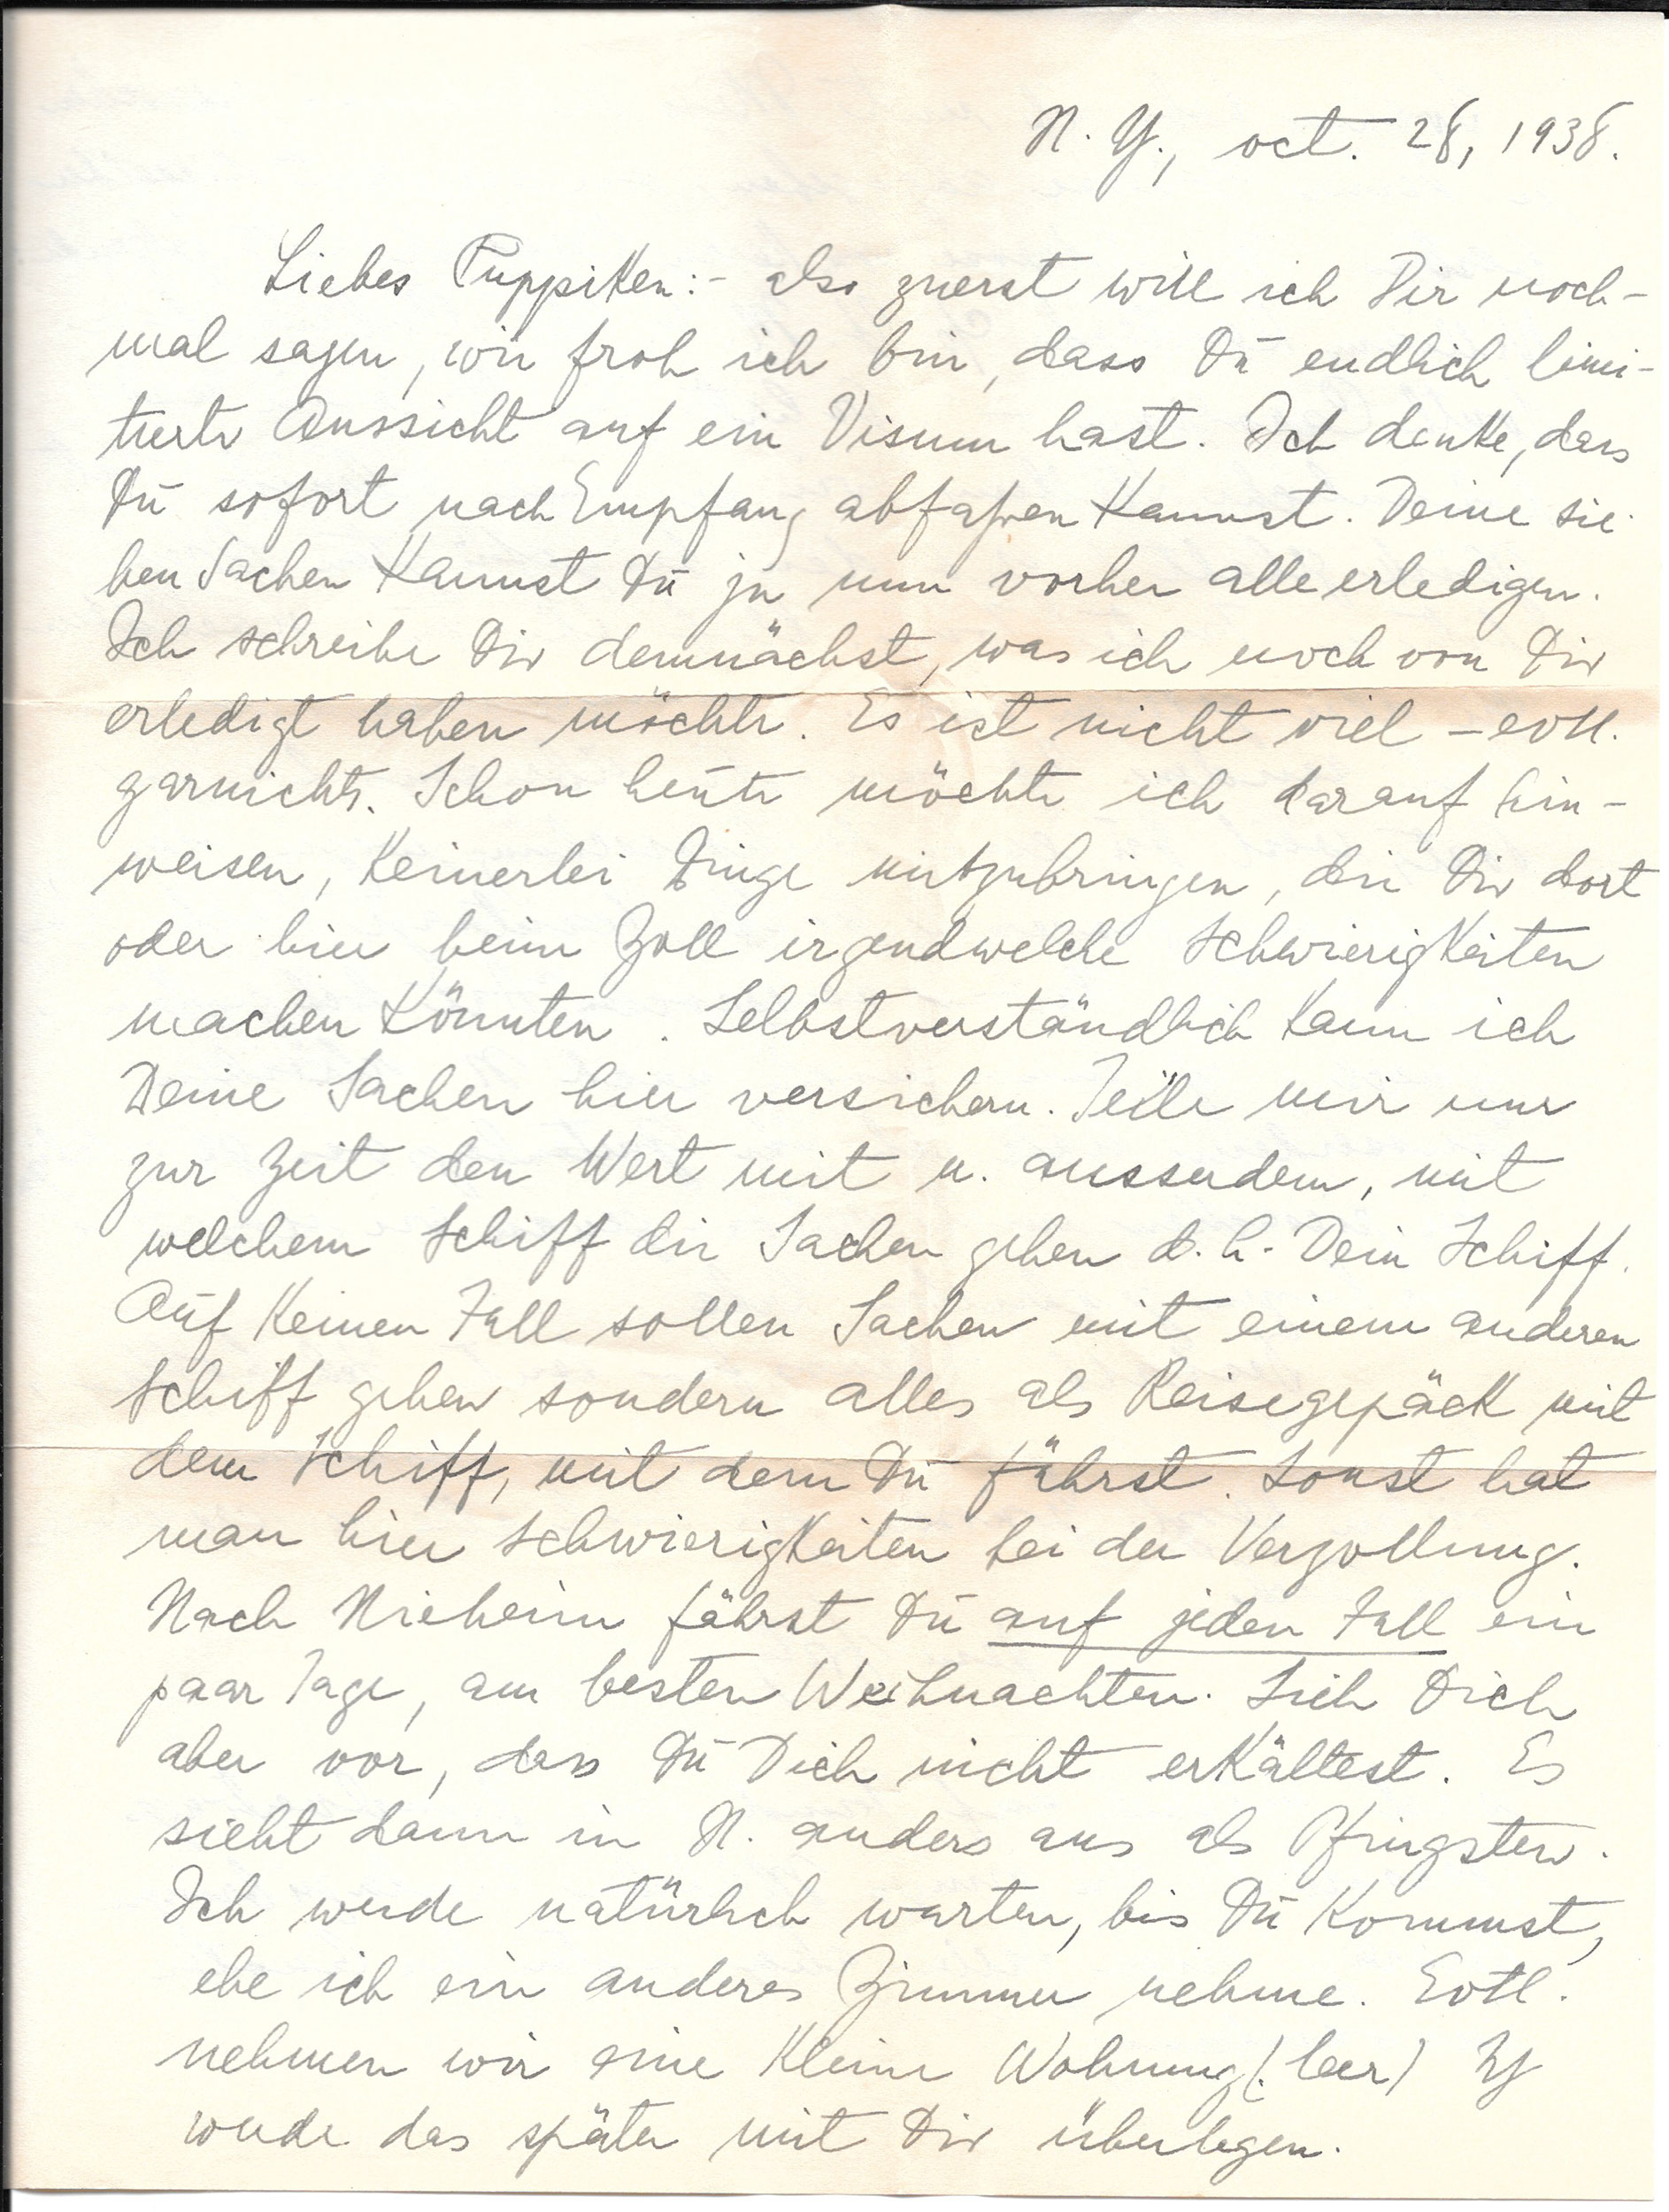 N. Y., oct. 28, 1938.
Liebes Puppiken:- also zuerst will ich Dir noch-
mal sagen, wie froh ich bin, dass Du endlich limi-
tierte Aussicht auf ein Visum hast. Ich denke, dass
Du sofort nach Empfang abfahren kannst. Deine sie-
ben Sachen kannst Du ja nun vorher alle erledigen.
Ich schreibe Dir demnächst, was ich noch von Dir
erledigt haben möchte. Es ist nicht viel – evtl.
garnichts. Schon heute möchte ich darauf hin-
weisen, keinerlei Dinge mitzubringen, die Dir dort
oder hier beim Zoll irgendwelche Schwierigkeiten
machen könnten. Selbstverständlich kann ich
Deine Sachen hier versichern. Teile mir nur
zur Zeit den Wert mit u. ausserdem, mit
welchem Schiff die Sachen gehen d. h. Dein Schiff.
Auf keinen Fall sollen Sachen mit einem anderen
Schiff gehen sondern alles als Reisegepäck mit
dem Schiff, mit dem Du fährst. Sonst hat
man hier Schwierigkeiten bei der Verzollung.
Nach Nieheim fährst Du auf jeden Fall ein
paar Tage, am besten Weihnachten. Sieh Dich
aber vor, dass Du Dich nicht erkältest. Es
sieht dann in N. anders aus als Pfingsten.
Ich werde natürlich warten, bis Du kommst,
ehe ich ein anderes Zimmer nehme. Evtl.
nehmen wir eine kleine Wohnung (leer)
werde das später mit Dir überlegen.